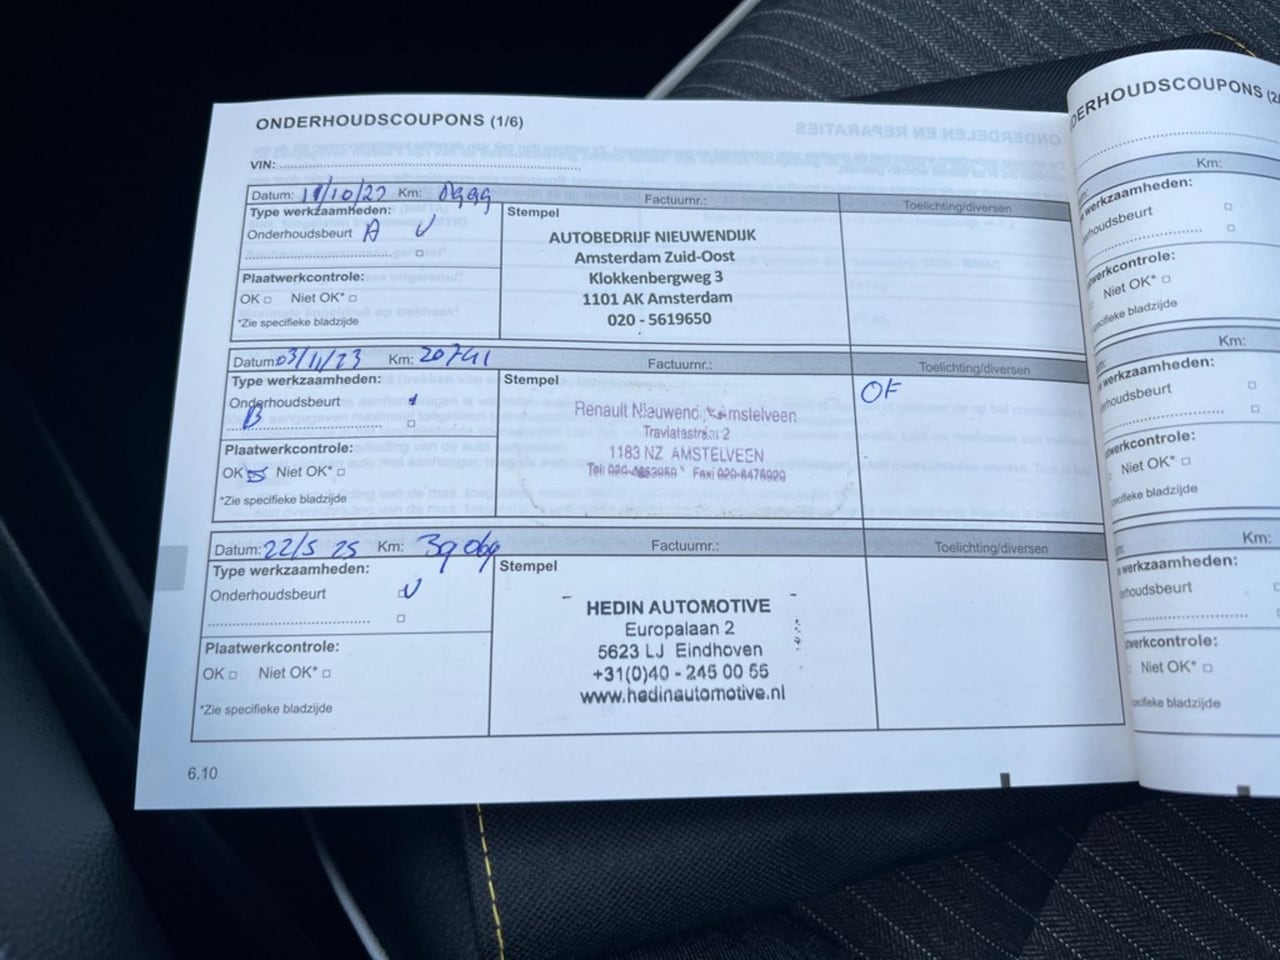 ONDERHOUDSCOUPONS (1/6)
VIN:
Datum: 11/10/22 Km: Factuurnr.: Toelichting/diversen
Type werkzaamheden: Stempel
Onderhoudsbeurt A V
Plaatwerkcontrole:
OK Niet OK*
*Zie specifieke bladzijde
AUTOBEDRIJF NIEUWENDIJK
Amsterdam Zuid-Oost
Klokkenbergweg 3
1101 AK Amsterdam
020 - 5619650
Datum: 03/11/23 Km: 20741 Factuurnr.: Toelichting/diversen
Type werkzaamheden: Stempel
Onderhoudsbeurt
B
Plaatwerkcontrole:
OK Niet OK*
*Zie specifieke bladzijde
Renault Nieuwend Amstelveen
Traviatastraat 2
1183 NZ AMSTELVEEN
OF
Datum: 22/5 25 Km: 39069 Factuurnr.: Toelichting/diversen
Type werkzaamheden: Stempel
Onderhoudsbeurt V
Plaatwerkcontrole:
OK Niet OK*
*Zie specifieke bladzijde
HEDIN AUTOMOTIVE
Europalaan 2
5623 LJ Eindhoven
+31(0)40 - 245 00 55
www.hedinautomotive.nl
6.10
DERHOUDSCOUPONS (2/
Km:
werkzaamheden:
rhoudsbeurt
werkcontrole:
Niet OK*
specifieke bladzijde
Km:
werkzaamheden:
rhoudsbeurt
werkcontrole:
Niet OK*
specifieke bladzijde
Km:
werkzaamheden:
rhoudsbeurt
werkcontrole:
Niet OK*
specifieke bladzijde